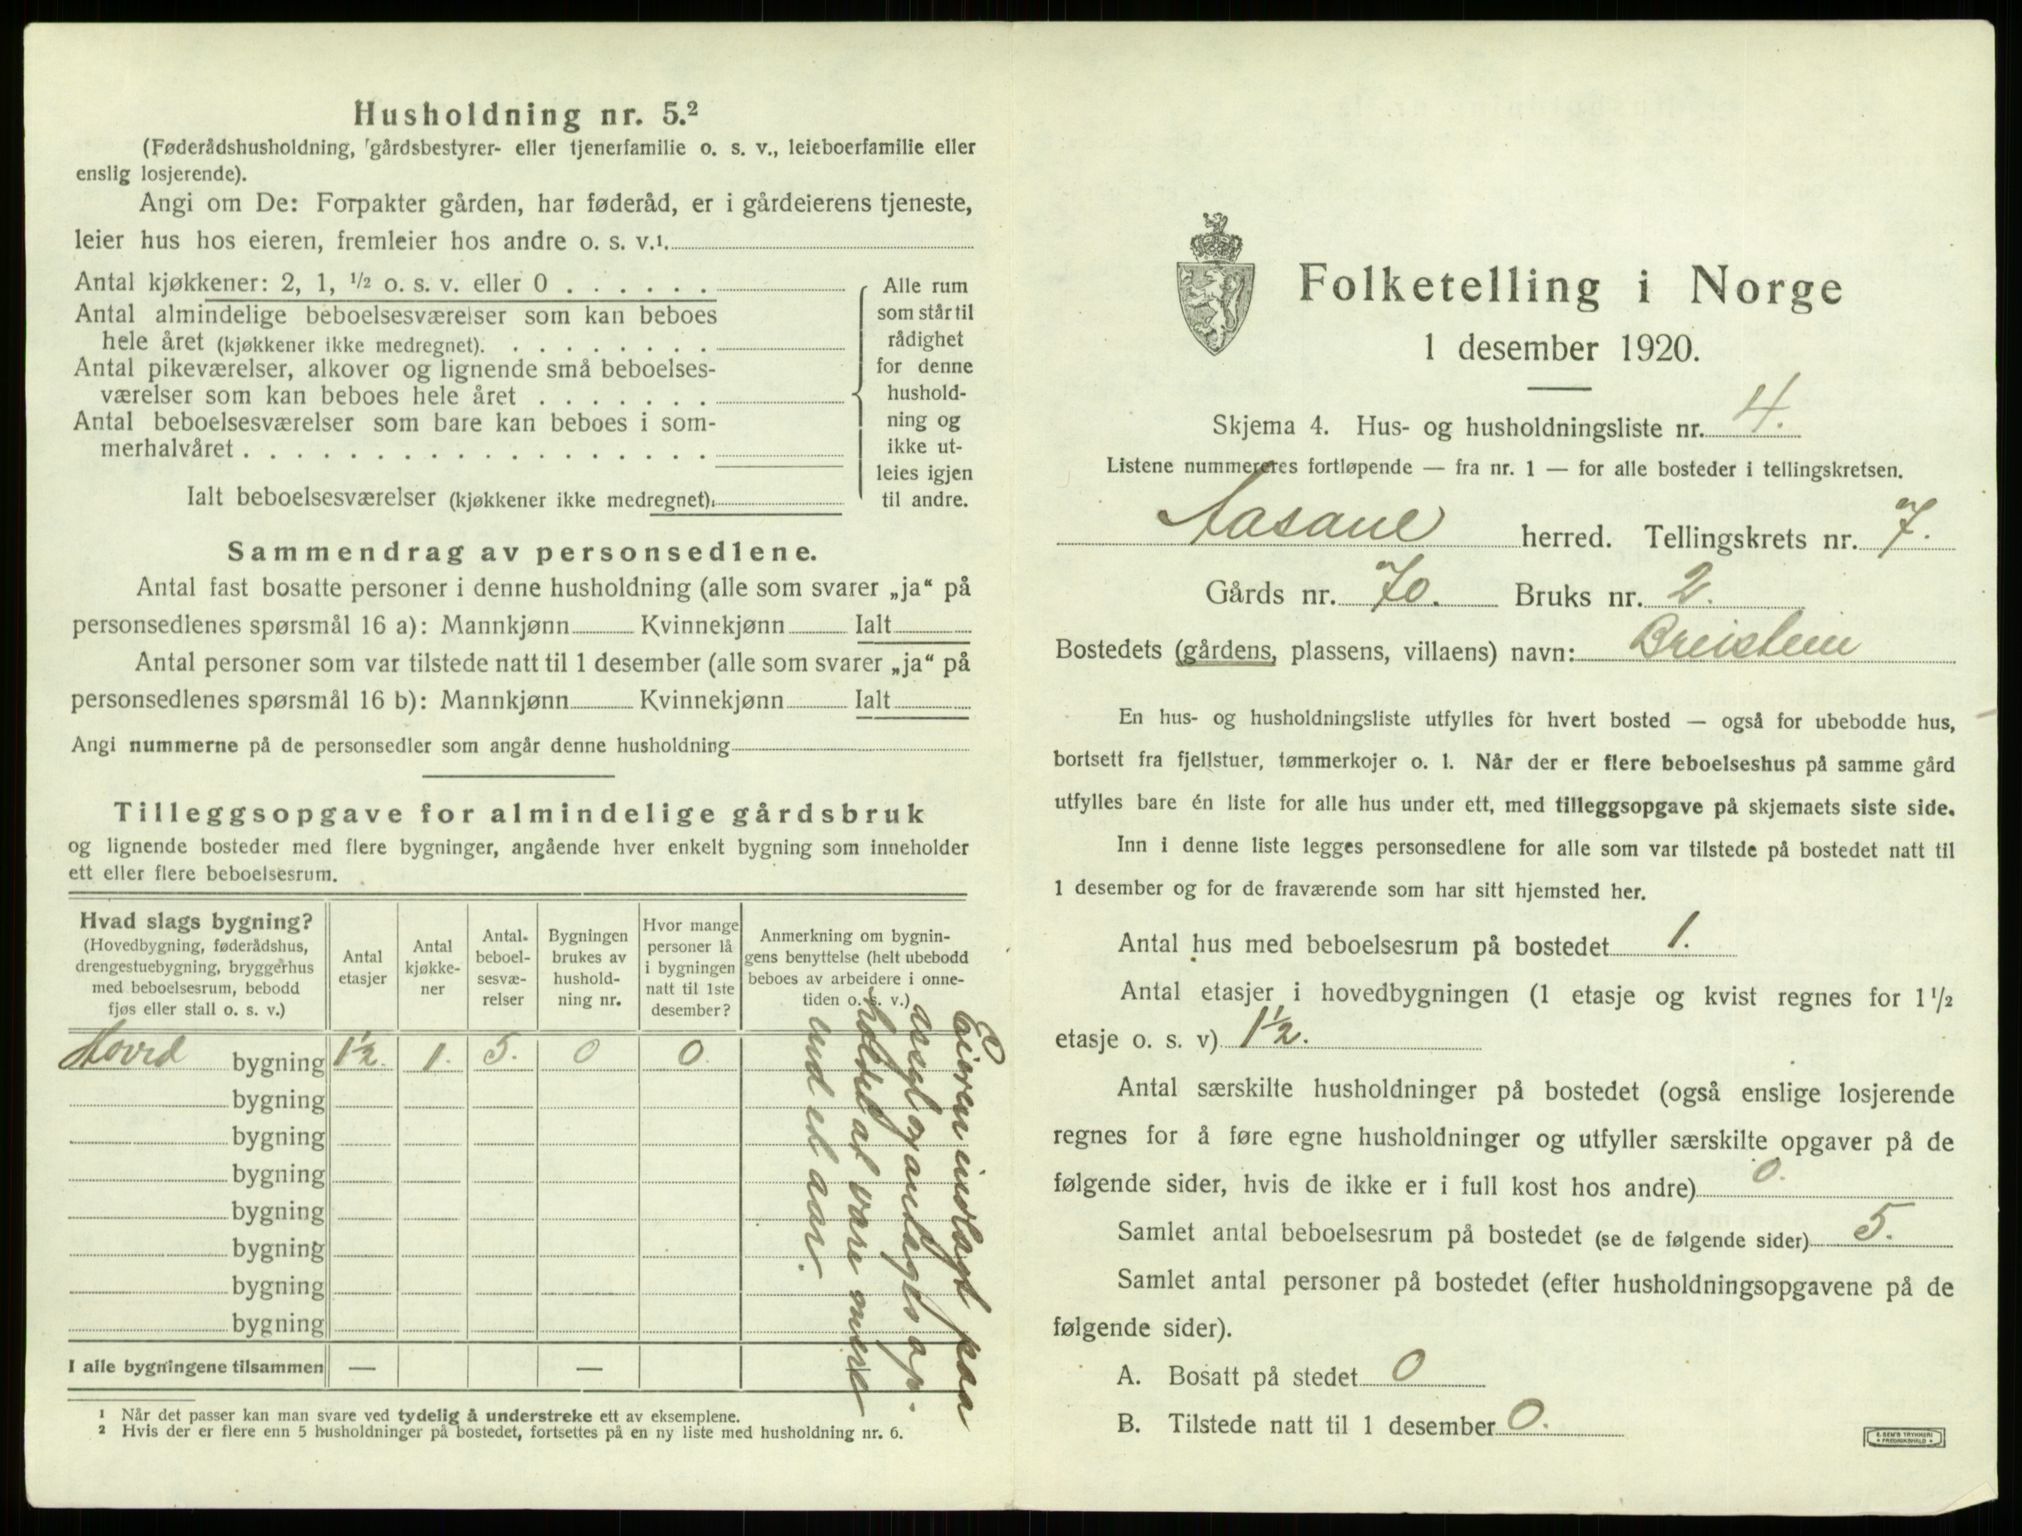 Husholdning nr. 5.²
(Føderådshusholdning, gårdsbestyrer- eller tjenerfamilie o. s. v., leieboerfamilie eller
enslig losjerende).
Angi om De: Forpakter gården, har føderåd, er i gårdeierens tjeneste,
leier hus hos eieren, fremleier hos andre o. s. v.¹
Antal kjøkkener: 2, 1, ½ o. s. v. eller 0
Antal almindelige beboelsesværelser som kan beboes
hele året (kjøkkener ikke medregnet).
Antal pikeværelser, alkover og lignende små beboelses-
værelser som kan beboes hele året
Antal beboelsesværelser som bare kan beboes i som-
merhalvåret
Ialt beboelsesværelser (kjøkkener ikke medregnet):
Alle rum
som står til
rådighet
for denne
hushold-
ning og
ikke ut-
leies igjen
til andre.
Sammendrag av personsedlene.
Antal fast bosatte personer i denne husholdning (alle som svarer „ja“ på
personsedlenes spørsmål 16 a): Mannkjønn Kvinnekjønn Ialt
Antal personer som var tilstede natt til 1 desember (alle som svarer „ja“ på
personsedlenes spørsmål 16 b): Mannkjønn Kvinnekjønn Ialt
Angi nummerne på de personsedler som angår denne husholdning
Tilleggsopgave for almindelige gårdsbruk
og lignende bosteder med flere bygninger, angående hver enkelt bygning som inneholder
ett eller flere beboelsesrum.
Hvad slags bygning?
(Hovedbygning, føderådshus,
drengestuebygning, bryggerhus
med beboelsesrum, bebodd
fjøs eller stall o. s. v.)
Antal
etasjer
Antal
kjøkke-
ner
Antal-
beboel-
sesvæ-
relser
Bygningen
brukes av
hushold-
ning nr.
Hvor mange
personer lå
i bygningen
natt til 1ste
desember?
Anmerkning om bygnin-
gens benyttelse (helt ubebodd
beboes av arbeidere i onne-
tiden o. s. v.)
Hoved bygning 1½. 1. 5. 0 0.
bygning
bygning
bygning
bygning
bygning
bygning
bygning
I alle bygningene tilsammen — —
Eieren indlagt paa
asyl og antages op-
holdet at vare mere
end et aar.
¹ Når det passer kan man svare ved tydelig å understreke ett av eksemplene.
² Hvis der er flere enn 5 husholdninger på bostedet, fortsettes på en ny liste med husholdning nr. 6.
Folketelling i Norge
1 desember 1920.
Skjema 4. Hus- og husholdningsliste nr. 4.
Listene nummereres fortløpende — fra nr. 1 — for alle bosteder i tellingskretsen.
Aasane herred. Tellingskrets nr. 7.
Gårds nr. 70. Bruks nr. 2.
Bostedets (gårdens, plassens, villaens) navn: Breistein
En hus- og husholdningsliste utfylles for hvert bosted — også for ubebodde hus,
bortsett fra fjellstuer, tømmerkojer o. l. Når der er flere beboelseshus på samme gård
utfylles bare én liste for alle hus under ett, med tilleggsopgave på skjemaets siste side.
Inn i denne liste legges personsedlene for alle som var tilstede på bostedet natt til
1 desember og for de fraværende som har sitt hjemsted her.
Antal hus med beboelsesrum på bostedet 1.
Antal etasjer i hovedbygningen (1 etasje og kvist regnes for 1½
etasje o. s. v) 1½.
Antal særskilte husholdninger på bostedet (også enslige losjerende
regnes for å føre egne husholdninger og utfyller særskilte opgaver på de
følgende sider, hvis de ikke er i full kost hos andre) 0.
Samlet antal beboelsesrum på bostedet (se de følgende sider) 5.
Samlet antal personer på bostedet (efter husholdningsopgavene på de
følgende sider).
A. Bosatt på stedet 0
B. Tilstede natt til 1 desember 0.
E. SEM'S TRYKKERI
FREDRIKSHALD